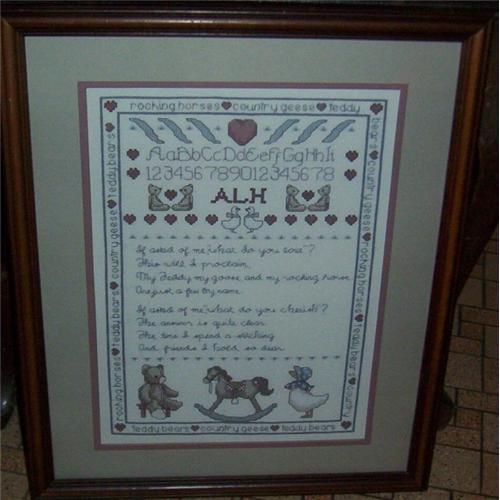 rocking horses country geese teddy
bears country geese rocking horses country
teddy bears country geese teddy bears
rocking horses teddy bears country geese teddy bears
AaBbCcDdEeFfGgHhIi
123456789012345678
ALH
If asked of me, what do you love?
This will I proclaim
My Teddy my goose and my rocking horse
Are just a few by name.
If asked of me, what do you cherish?
The answer is quite clear
The time I spend a stitching
And friends I hold so dear